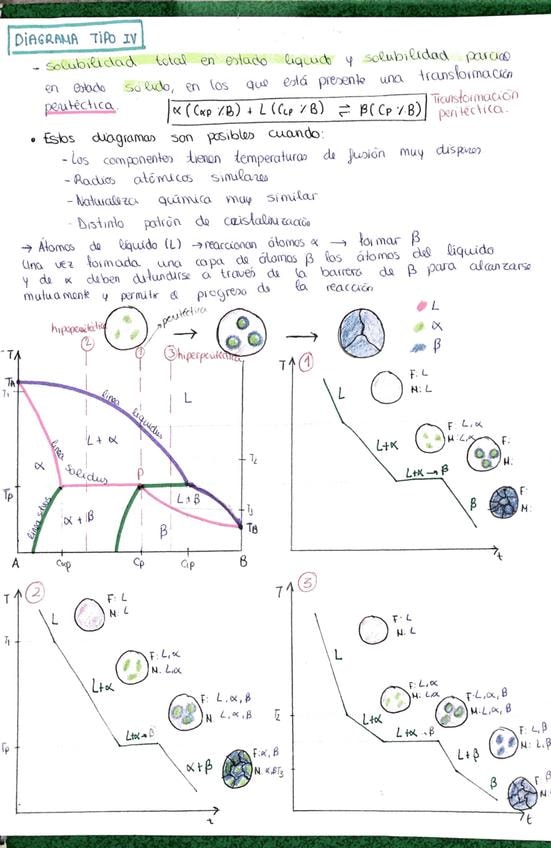 DIAGRAMA TIPO IV
- Solubilidad total en estado líquido y solubilidad parcial
en estado sólido, en los que está presente una transformación
peritéctica. α (Cαp %B) + L (CLp %B) ⇌ β (Cp %B) Transformación
peritéctica.
• Estos diagramas son posibles cuando:
- Los componentes tienen temperaturas de fusión muy dispares
- Radios atómicos similares
- Naturaleza química muy similar
- Distinto patrón de cristalización
→ Átomos de líquido (L) → reaccionan átomos α → formar β
Una vez formada una capa de átomos β los átomos del líquido
y de α deben difundirse a través de la barrera de β para alcanzarse
mutuamente y permitir el progreso de la reacción
L
α
β
hipoperitéctica peritéctica
② ① ③ hiperperitéctica
T
TA
T1
línea liquidus
L
L+α
α
línea solidus
T2
Tp
P
L+β
T3
TB
línea solvus
α+β
β
A Cαp Cp CLp B
T ①
L
F: L
M: L
L+α
F: L,α
M: L,α
F:
M:
L+α→β
β
F:
M:
t
T ②
L
F: L
M: L
T1
L+α
F: L,α
M: L,α
F: L,α,β
M: L,α,β
Tp
L+α→β
α+β
F: α,β
M: α,β
T ③
L
F: L
M: L
T2
L+α
F: L,α
M: L,α
L+α→β
F: L,α,β
M: L,α,β
L+β
F: L,β
M: L,β
T3
β
F: β
M: β
t